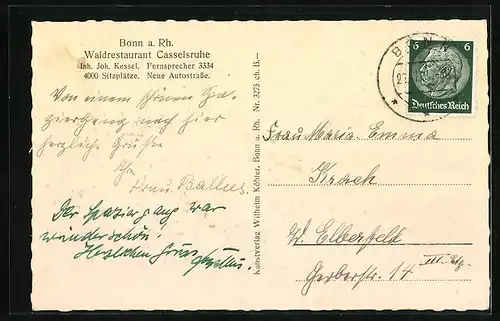 Bonn a. Rh.
Waldrestaurant Casselsruhe
Inh. Joh. Kessel. Fernsprecher 3334
4000 Sitzplätze. Neue Autostraße.
Von einem schönen Spa-
ziergang nach hier
herzliche Grüße
Ihr
Frau Ballus.
Der Spaziergang war
wunderschön.
Herzlichen Gruss
Kunstverlag Wilhelm Köhler, Bonn a. Rh. Nr. 3275 ch. B.—
BONN
6 6
Deutsches Reich
Frau Maria Emma
Krach
W. Elberfeld
Gerberstr. 14 III. Etg.